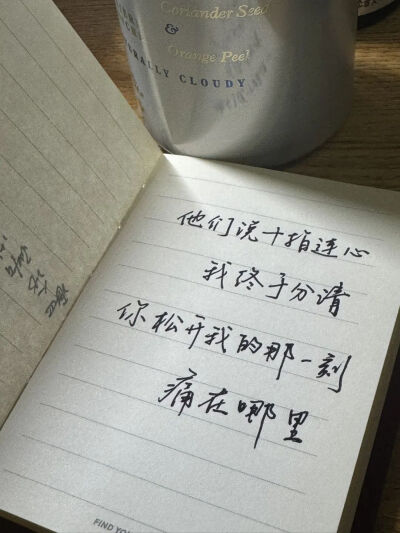 Coriander Seed
&
Orange Peel
RALLY CLOUDY
他们说十指连心
我终于分清
你松开我的那一刻
痛在哪里
FIND YO